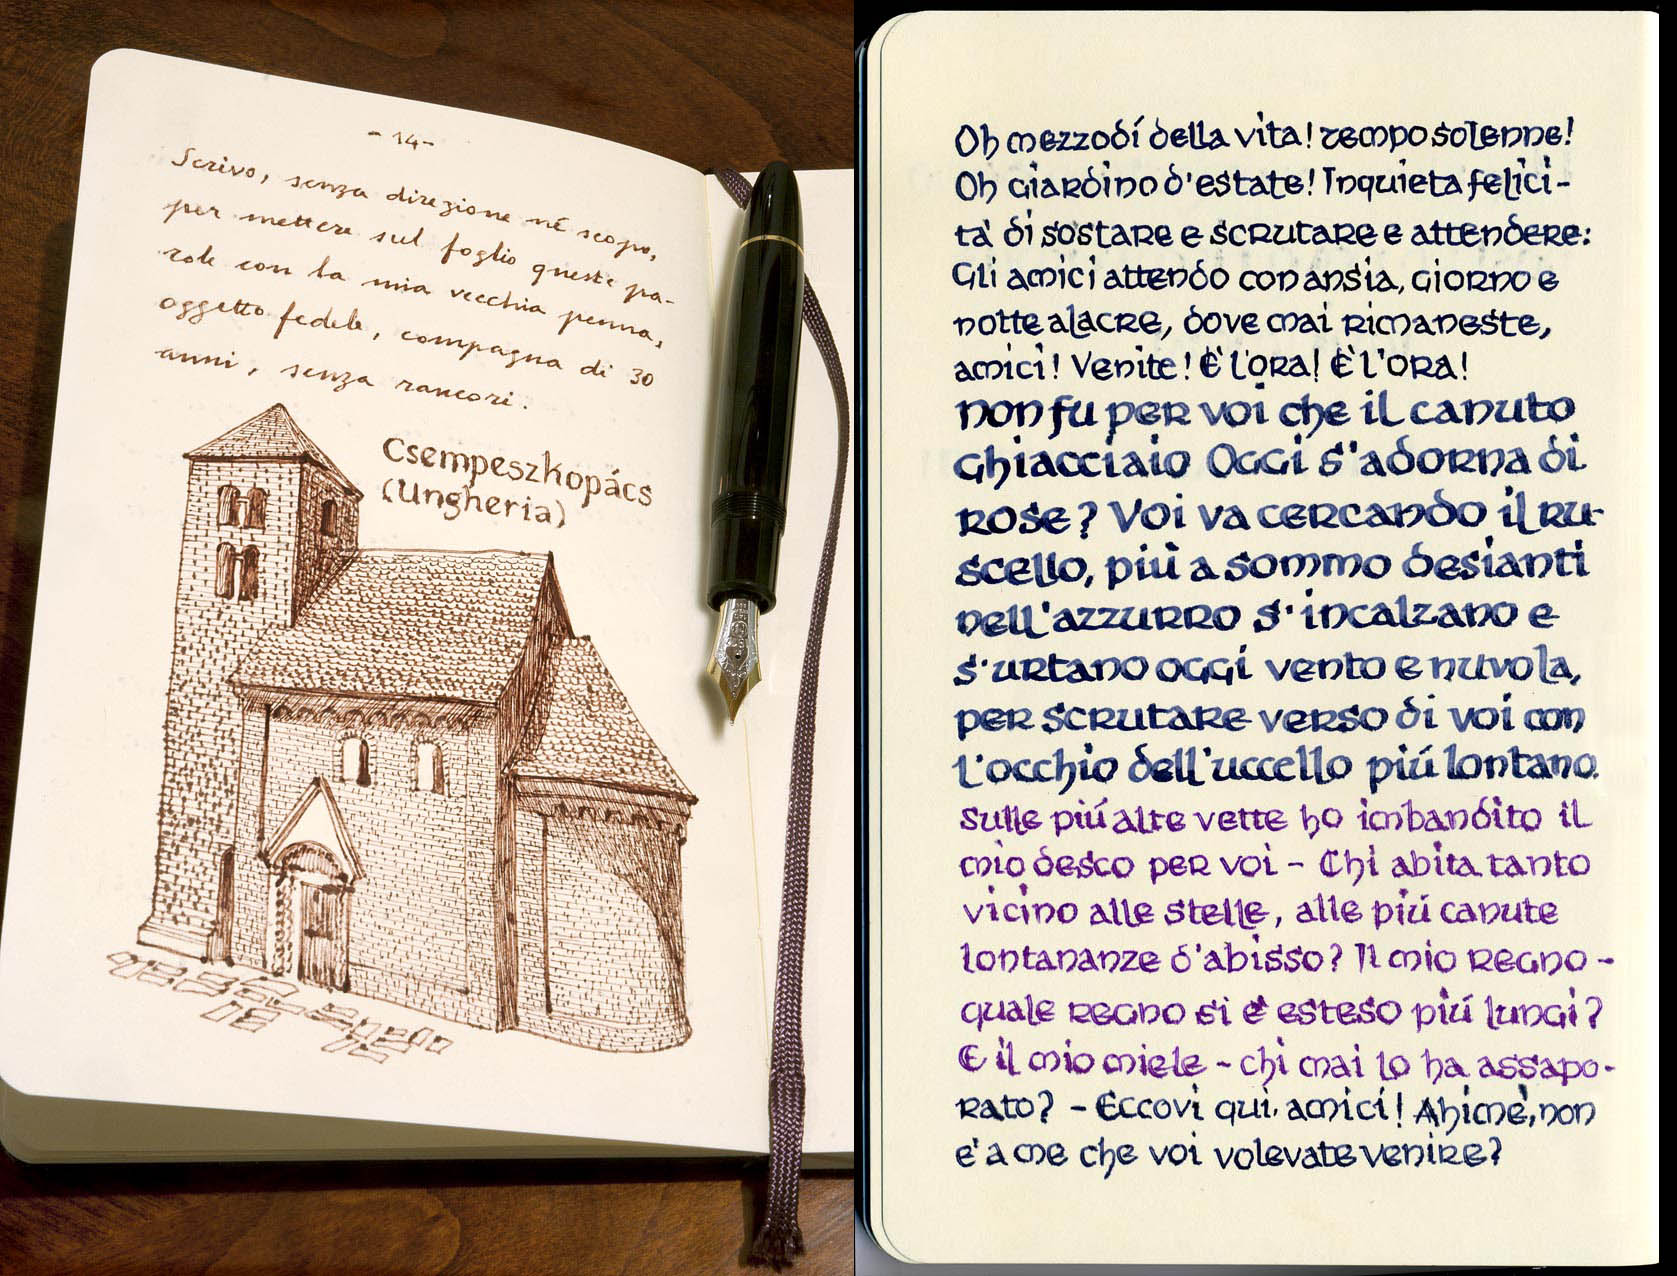 - 14 -
Scrivo, senza direzione né scopo,
per mettere sul foglio queste pa-
role con la mia vecchia penna,
oggetto fedele, compagna di 30
anni, senza rancori.
Csempeszkopács
(Ungheria)
Oh mezzodí della vita! tempo solenne!
Oh giardino d'estate! Inquieta felici-
tà di sostare e scrutare e attendere:
Gli amici attendo con ansia, giorno e
notte alacre, dove mai rimaneste,
amici! Venite! È l'ora! È l'ora!
non fu per voi che il canuto
ghiacciaio oggi s'adorna di
rose? Voi va cercando il ru-
scello, più a sommo desianti
nell'azzurro s'incalzano e
s'urtano oggi vento e nuvola,
per scrutare verso di voi con
l'occhio dell'uccello piú lontano.
Sulle piú alte vette ho imbandito il
mio desco per voi - Chi abita tanto
vicino alle stelle, alle piú canute
lontananze d'abisso? Il mio regno -
quale regno si è esteso piú lungi?
E il mio miele - chi mai lo ha assapo-
rato? - Eccovi qui, amici! Ahimè, non
è a me che voi volevate venire?